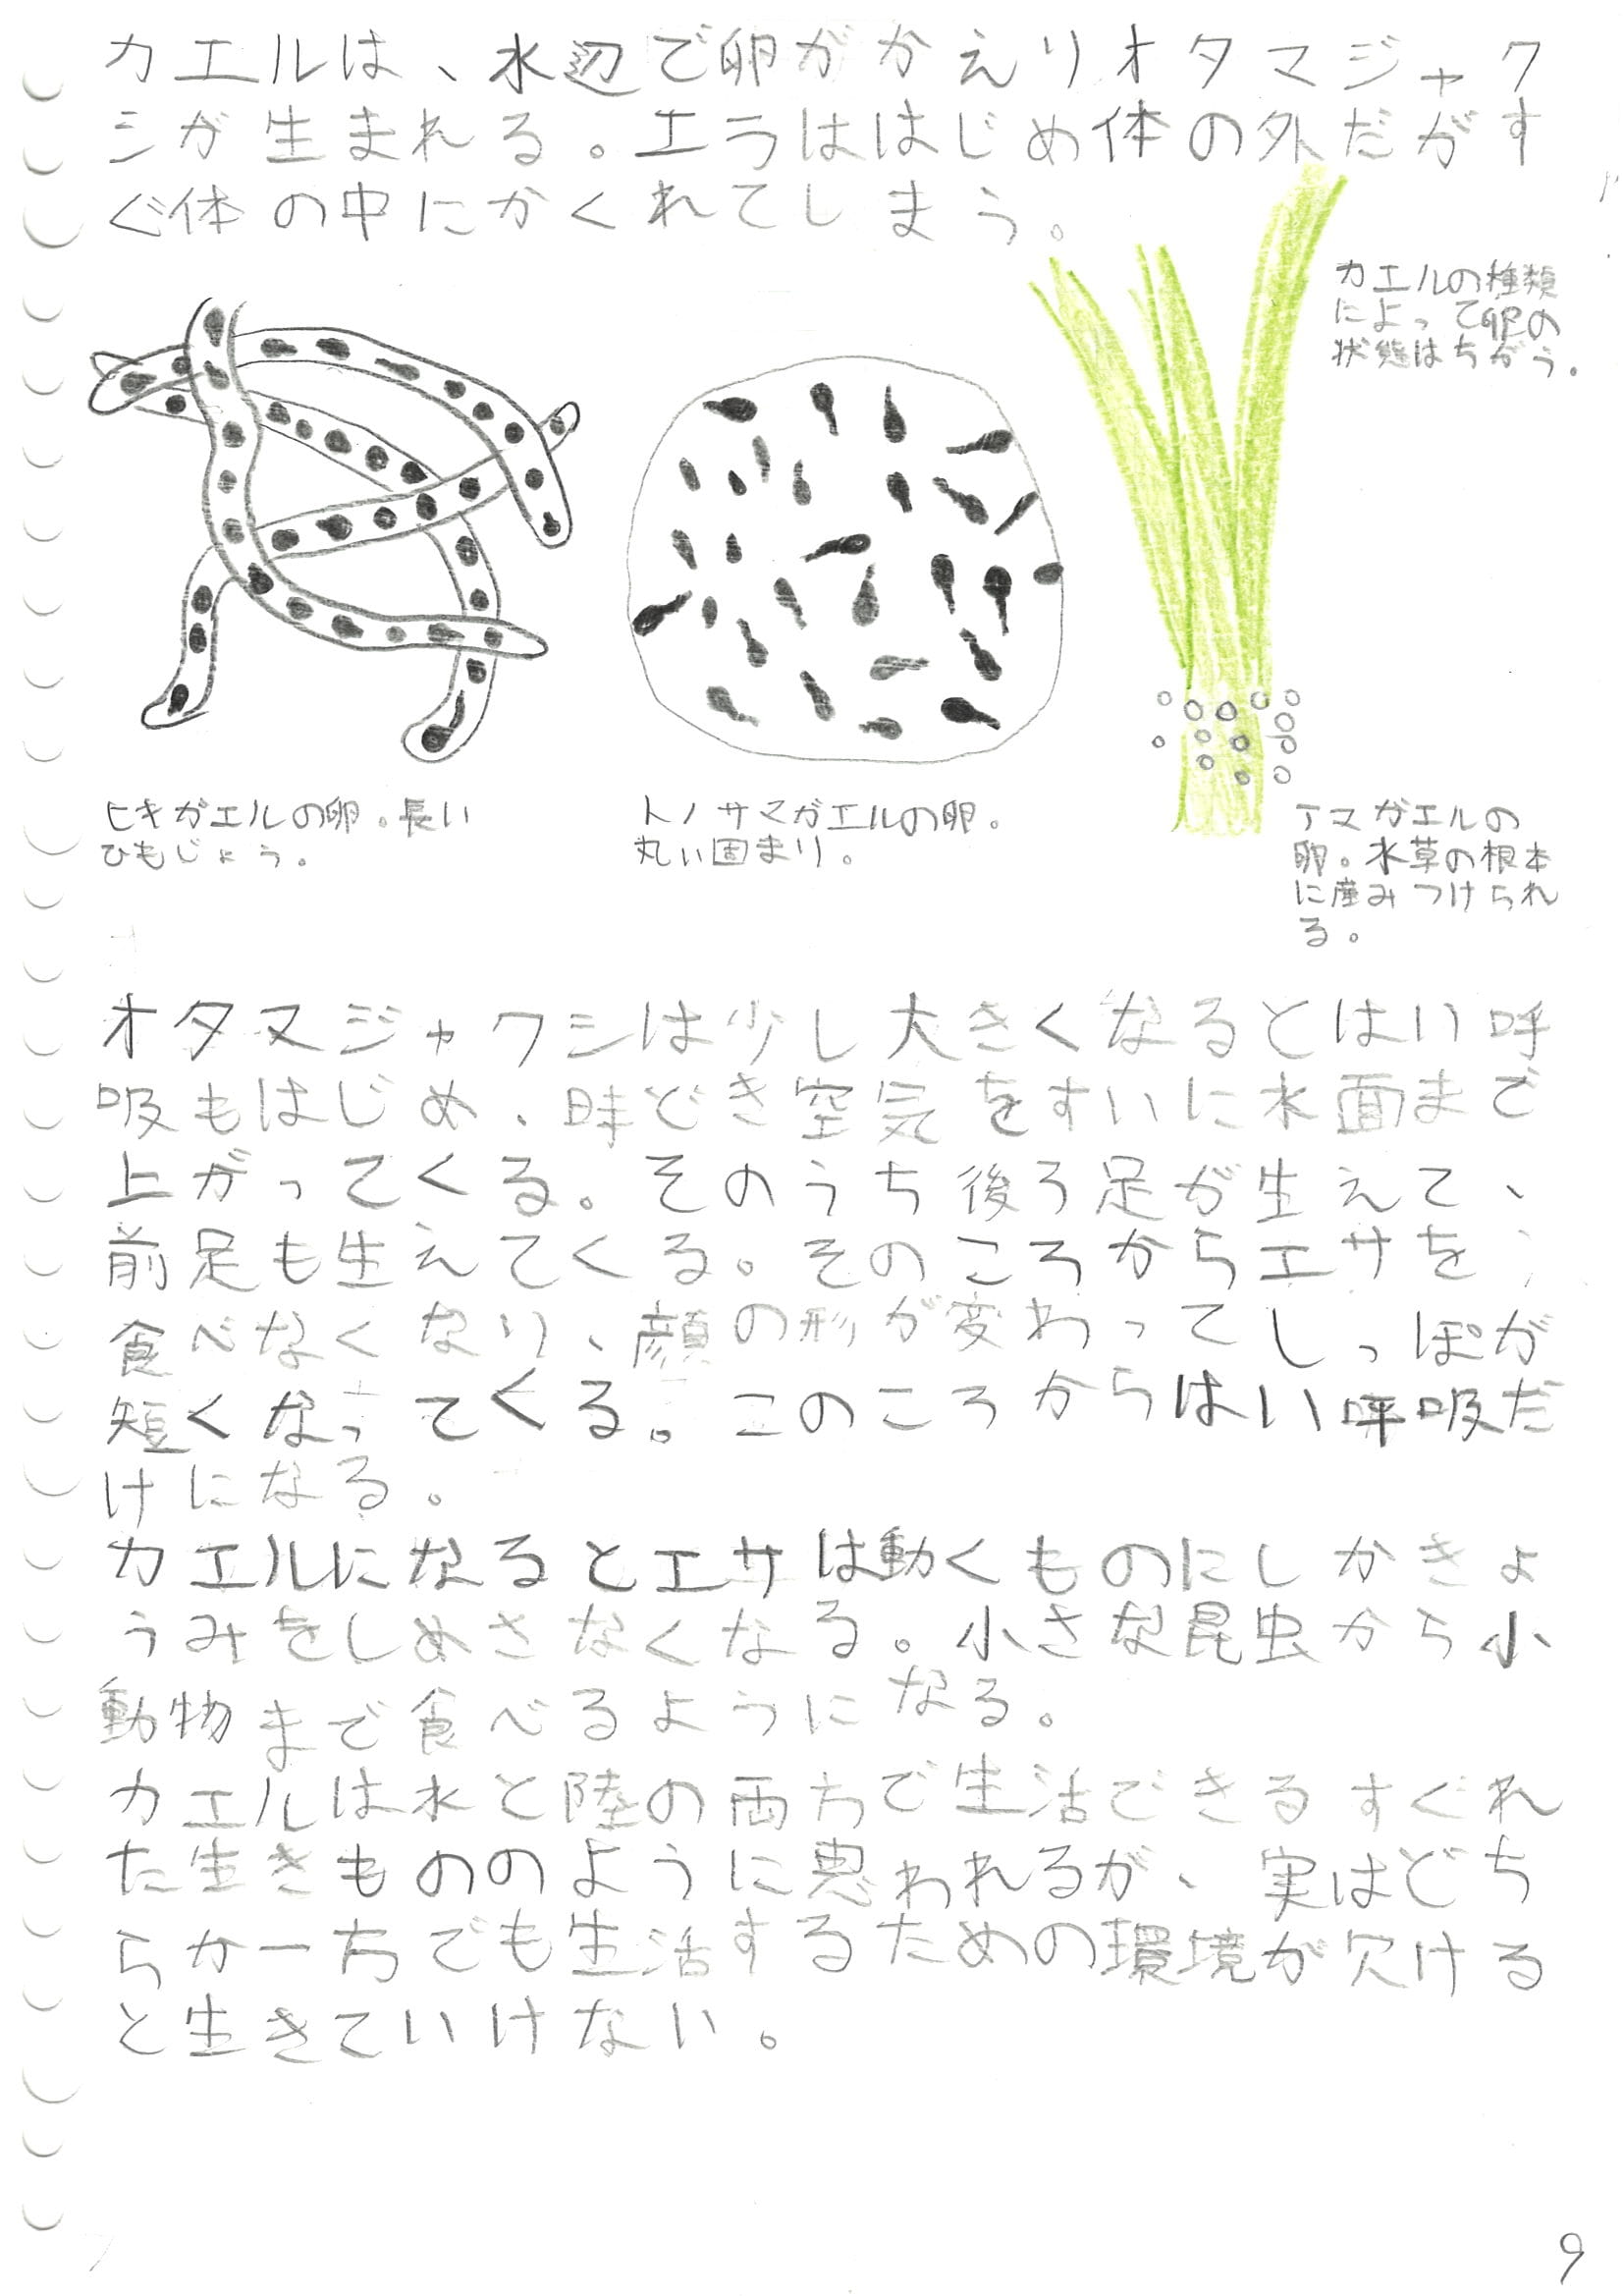 カエルは、水辺で卵がかえりオタマジャク
シが生まれる。エラははじめ体の外だがす
ぐ体の中にかくれてしまう。
カエルの種類
によって卵の
状態はちがう。
ヒキガエルの卵。長い
ひもじょう。
トノサマガエルの卵。
丸い固まり。
アマガエルの
卵。水草の根本
に産みつけられ
る。
オタマジャクシは少し大きくなるとはい呼
吸もはじめ、時どき空気をすいに水面まで
上がってくる。そのうち後ろ足が生えて、
前足も生えてくる。そのころからエサを
食べなくなり、顔の形が変わってしっぽが
短くなってくる。このころからはい呼吸だ
けになる。
カエルになるとエサは動くものにしかきょ
うみをしめさなくなる。小さな昆虫から小
動物まで食べるようになる。
カエルは水と陸の両方で生活できるすぐれ
た生きもののように思われるが、実はどち
らか一方でも生活するための環境が欠ける
と生きていけない。
9